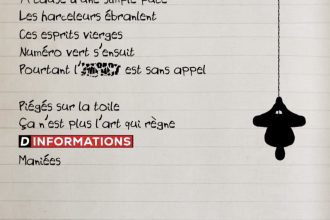 A cause d'une simple puce
Les harceleurs ébranlent
Ces esprits vierges
Numéro vert s'ensuit
Pourtant l' est sans appel
Piégés sur la toile
Ça n'est plus l'art qui règne
D INFORMATIONS
Maniées